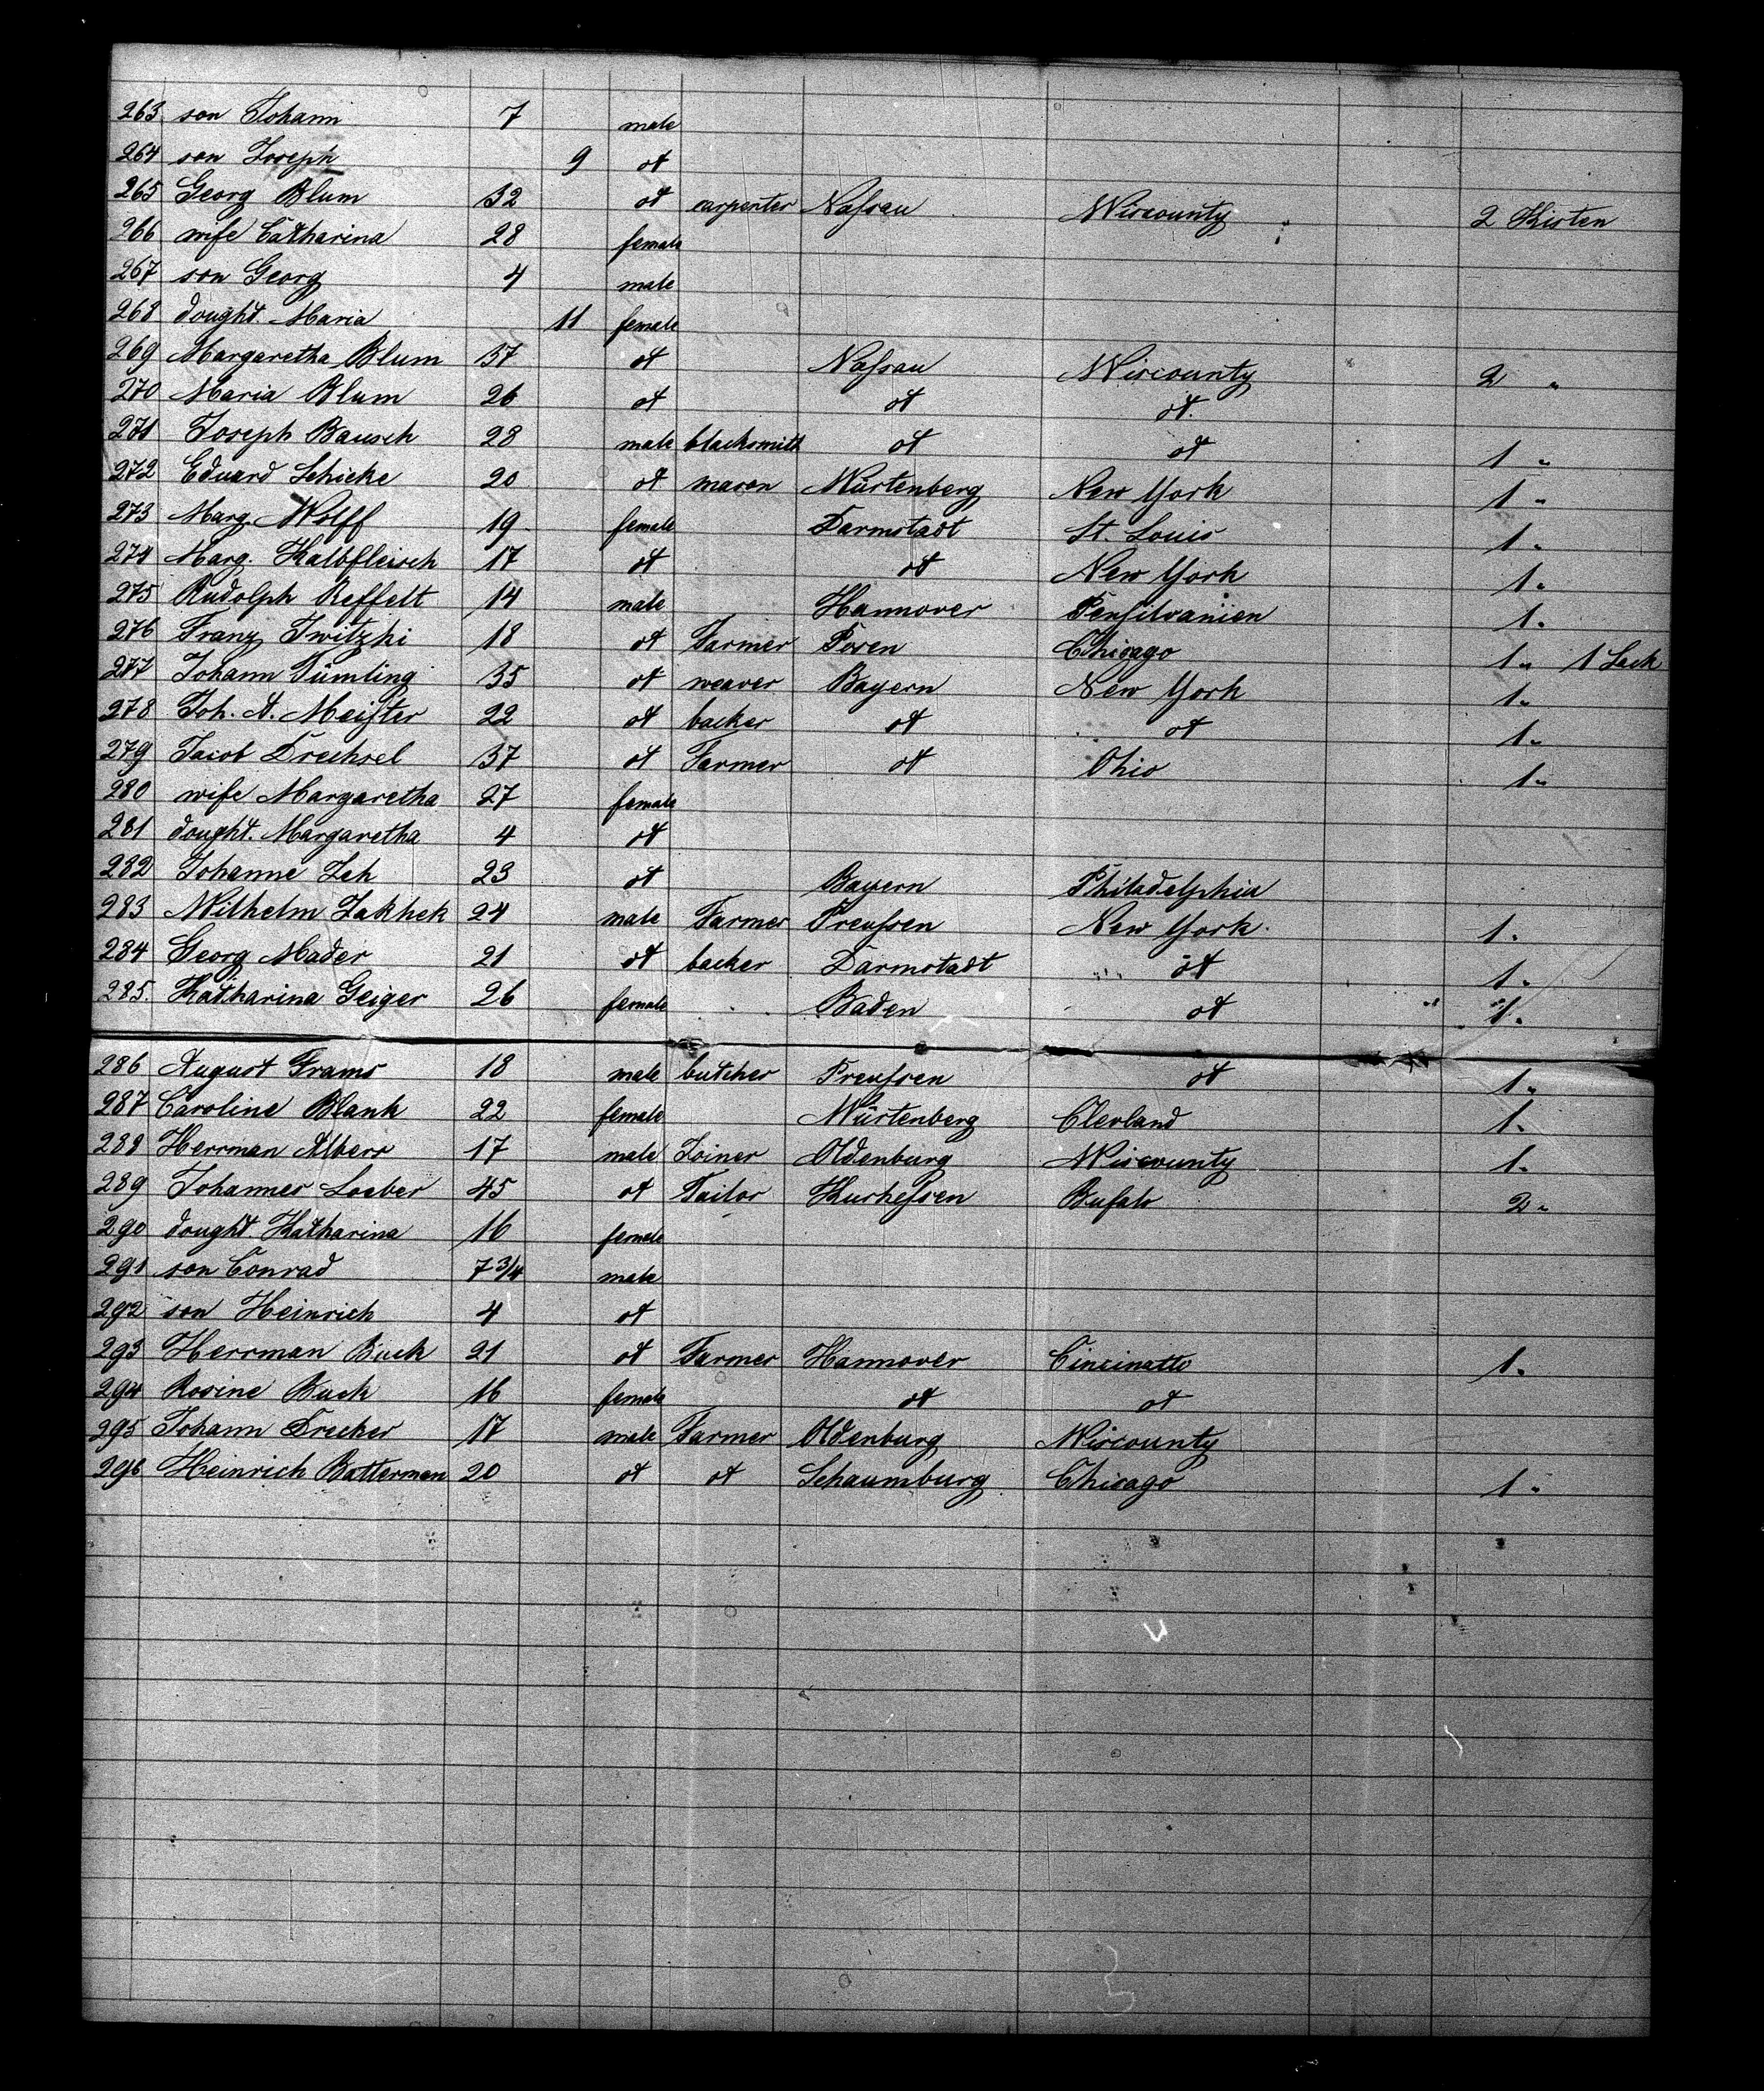 263 son Johann 7 male
264 son Joseph 9 ot
265 Georg Blum 32 ot carpenter Naſsau Wiscounty 2 Kisten
266 wife Catharina 28 female
267 son Georg 4 male
268 dought. Maria 11 female
269 Margaretha Blum 37 ot Naſsau Wiscounty 2 "
270 Maria Blum 26 ot ot ot.
271 Joseph Bausch 28 male blacksmith ot ot 1 "
272 Eduard Schicke 20 ot mason Würtenberg New York 1 "
273 Marg. Wolff 19 female Darmstadt St. Louis 1 "
274 Marg. Kalbfleisch 17 ot ot New York 1 "
275 Rudolph Reffelt 14 male Hannover Penſilvanien 1 "
276 Franz 18 ot Farmer Posen Chicago 1 " 1 Sack
277 Johann Tümling 35 ot weaver Bayern New York 1 "
278 Joh. A. Meiſter 22 ot backer ot ot 1 "
279 Jacob Drechsel 37 ot Farmer ot Ohio 1 "
280 wife Margaretha 27 female
281 dought. Margaretha 4 ot
282 Johanne Zeh 23 ot Bayern Philadelphia
283 Wilhelm 24 male Farmer Preuſsen New York. 1 "
284 Georg Mader 21 ot backer Darmstadt ot 1 "
285. Katharina Geiger 26 female Baden ot 1 "
286 August Frams 18 male butcher Preuſsen ot 1 "
287 Caroline Blank 22 female Würtenberg Clevland 1 "
288 Herrman Albers 17 male Joiner Oldenburg Wiscounty 1 "
289 Johannes Loeber 45 ot Tailor Kurheſsen Bufalo 2 "
290 dought. Katharina 16 female
291 son Conrad 7 3/4 male
292 son Heinrich 4 ot
293 Herrman Buck 21 ot Farmer Hannover Cincinatto 1 "
294 Rosine Buck 16 female ot ot
295 Johann Drecker 17 male Farmer Oldenburg Wiscounty
296 Heinrich Batterman 20 ot ot Schaumburg Chicago 1 "